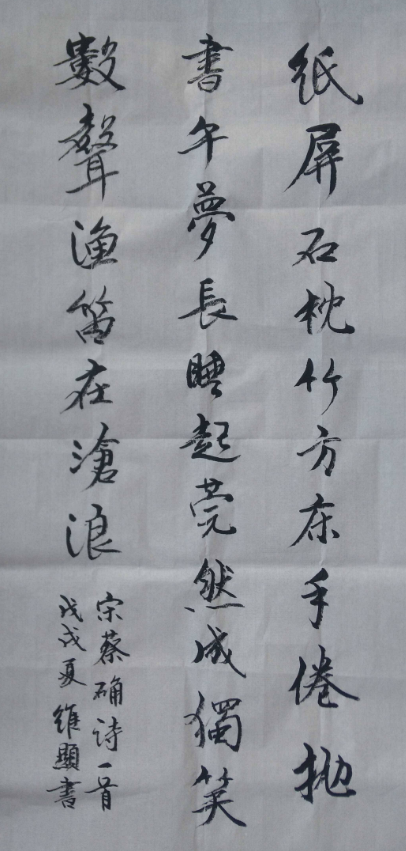 纸屏石枕竹方床手倦抛
書午夢長睡起莞然成獨笑
數聲渔笛在滄浪
宋蔡确诗一首
戊戌夏維顯書